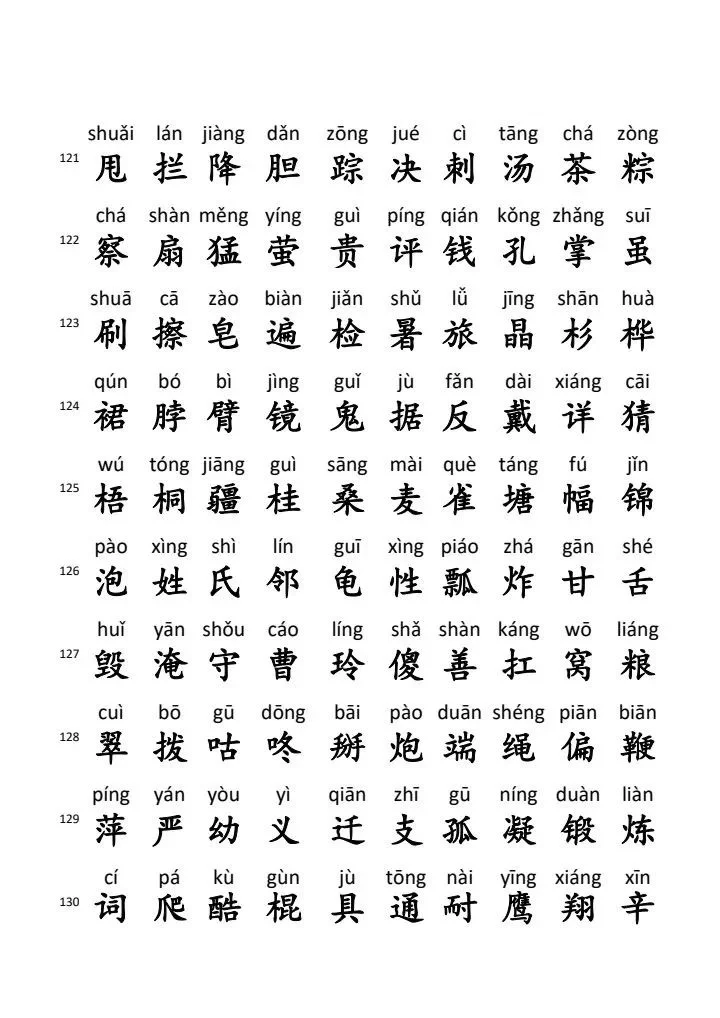 shuǎi lán jiàng dǎn zōng jué cì tāng chá zòng
121 甩 拦 降 胆 踪 决 刺 汤 茶 粽
chá shàn měng yíng guì píng qián kǒng zhǎng suī
122 察 扇 猛 萤 贵 评 钱 孔 掌 虽
shuā cā zào biàn jiǎn shǔ lǚ jīng shān huà
123 刷 擦 皂 遍 检 暑 旅 晶 杉 桦
qún bó bì jìng guǐ jù fǎn dài xiáng cāi
124 裙 脖 臂 镜 鬼 据 反 戴 详 猜
wú tóng jiāng guì sāng mài què táng fú jǐn
125 梧 桐 疆 桂 桑 麦 雀 塘 幅 锦
pào xìng shì lín guī xìng piáo zhá gān shé
126 泡 姓 氏 邻 龟 性 瓢 炸 甘 舌
huǐ yān shǒu cáo líng shǎ shàn káng wō liáng
127 毁 淹 守 曹 玲 傻 善 扛 窝 粮
cuì bō gū dōng bāi pào duān shéng piān biān
128 翠 拨 咕 咚 掰 炮 端 绳 偏 鞭
píng yán yòu yì qiān zhī gū níng duàn liàn
129 萍 严 幼 义 迁 支 孤 凝 锻 炼
cí pá kù gùn jù tōng nài yīng xiáng xīn
130 词 爬 酷 棍 具 通 耐 鹰 翔 辛